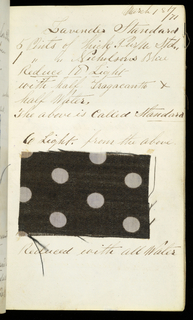 March 18th/70
Lavender Standard
5 Pints of thick Purple Std.
1 " " Nicholsons Blue
Reduce 18 Light
with half Tragacanth &
half Water,
The above is called Standard
6 Light from the above.
Reduced with all Water